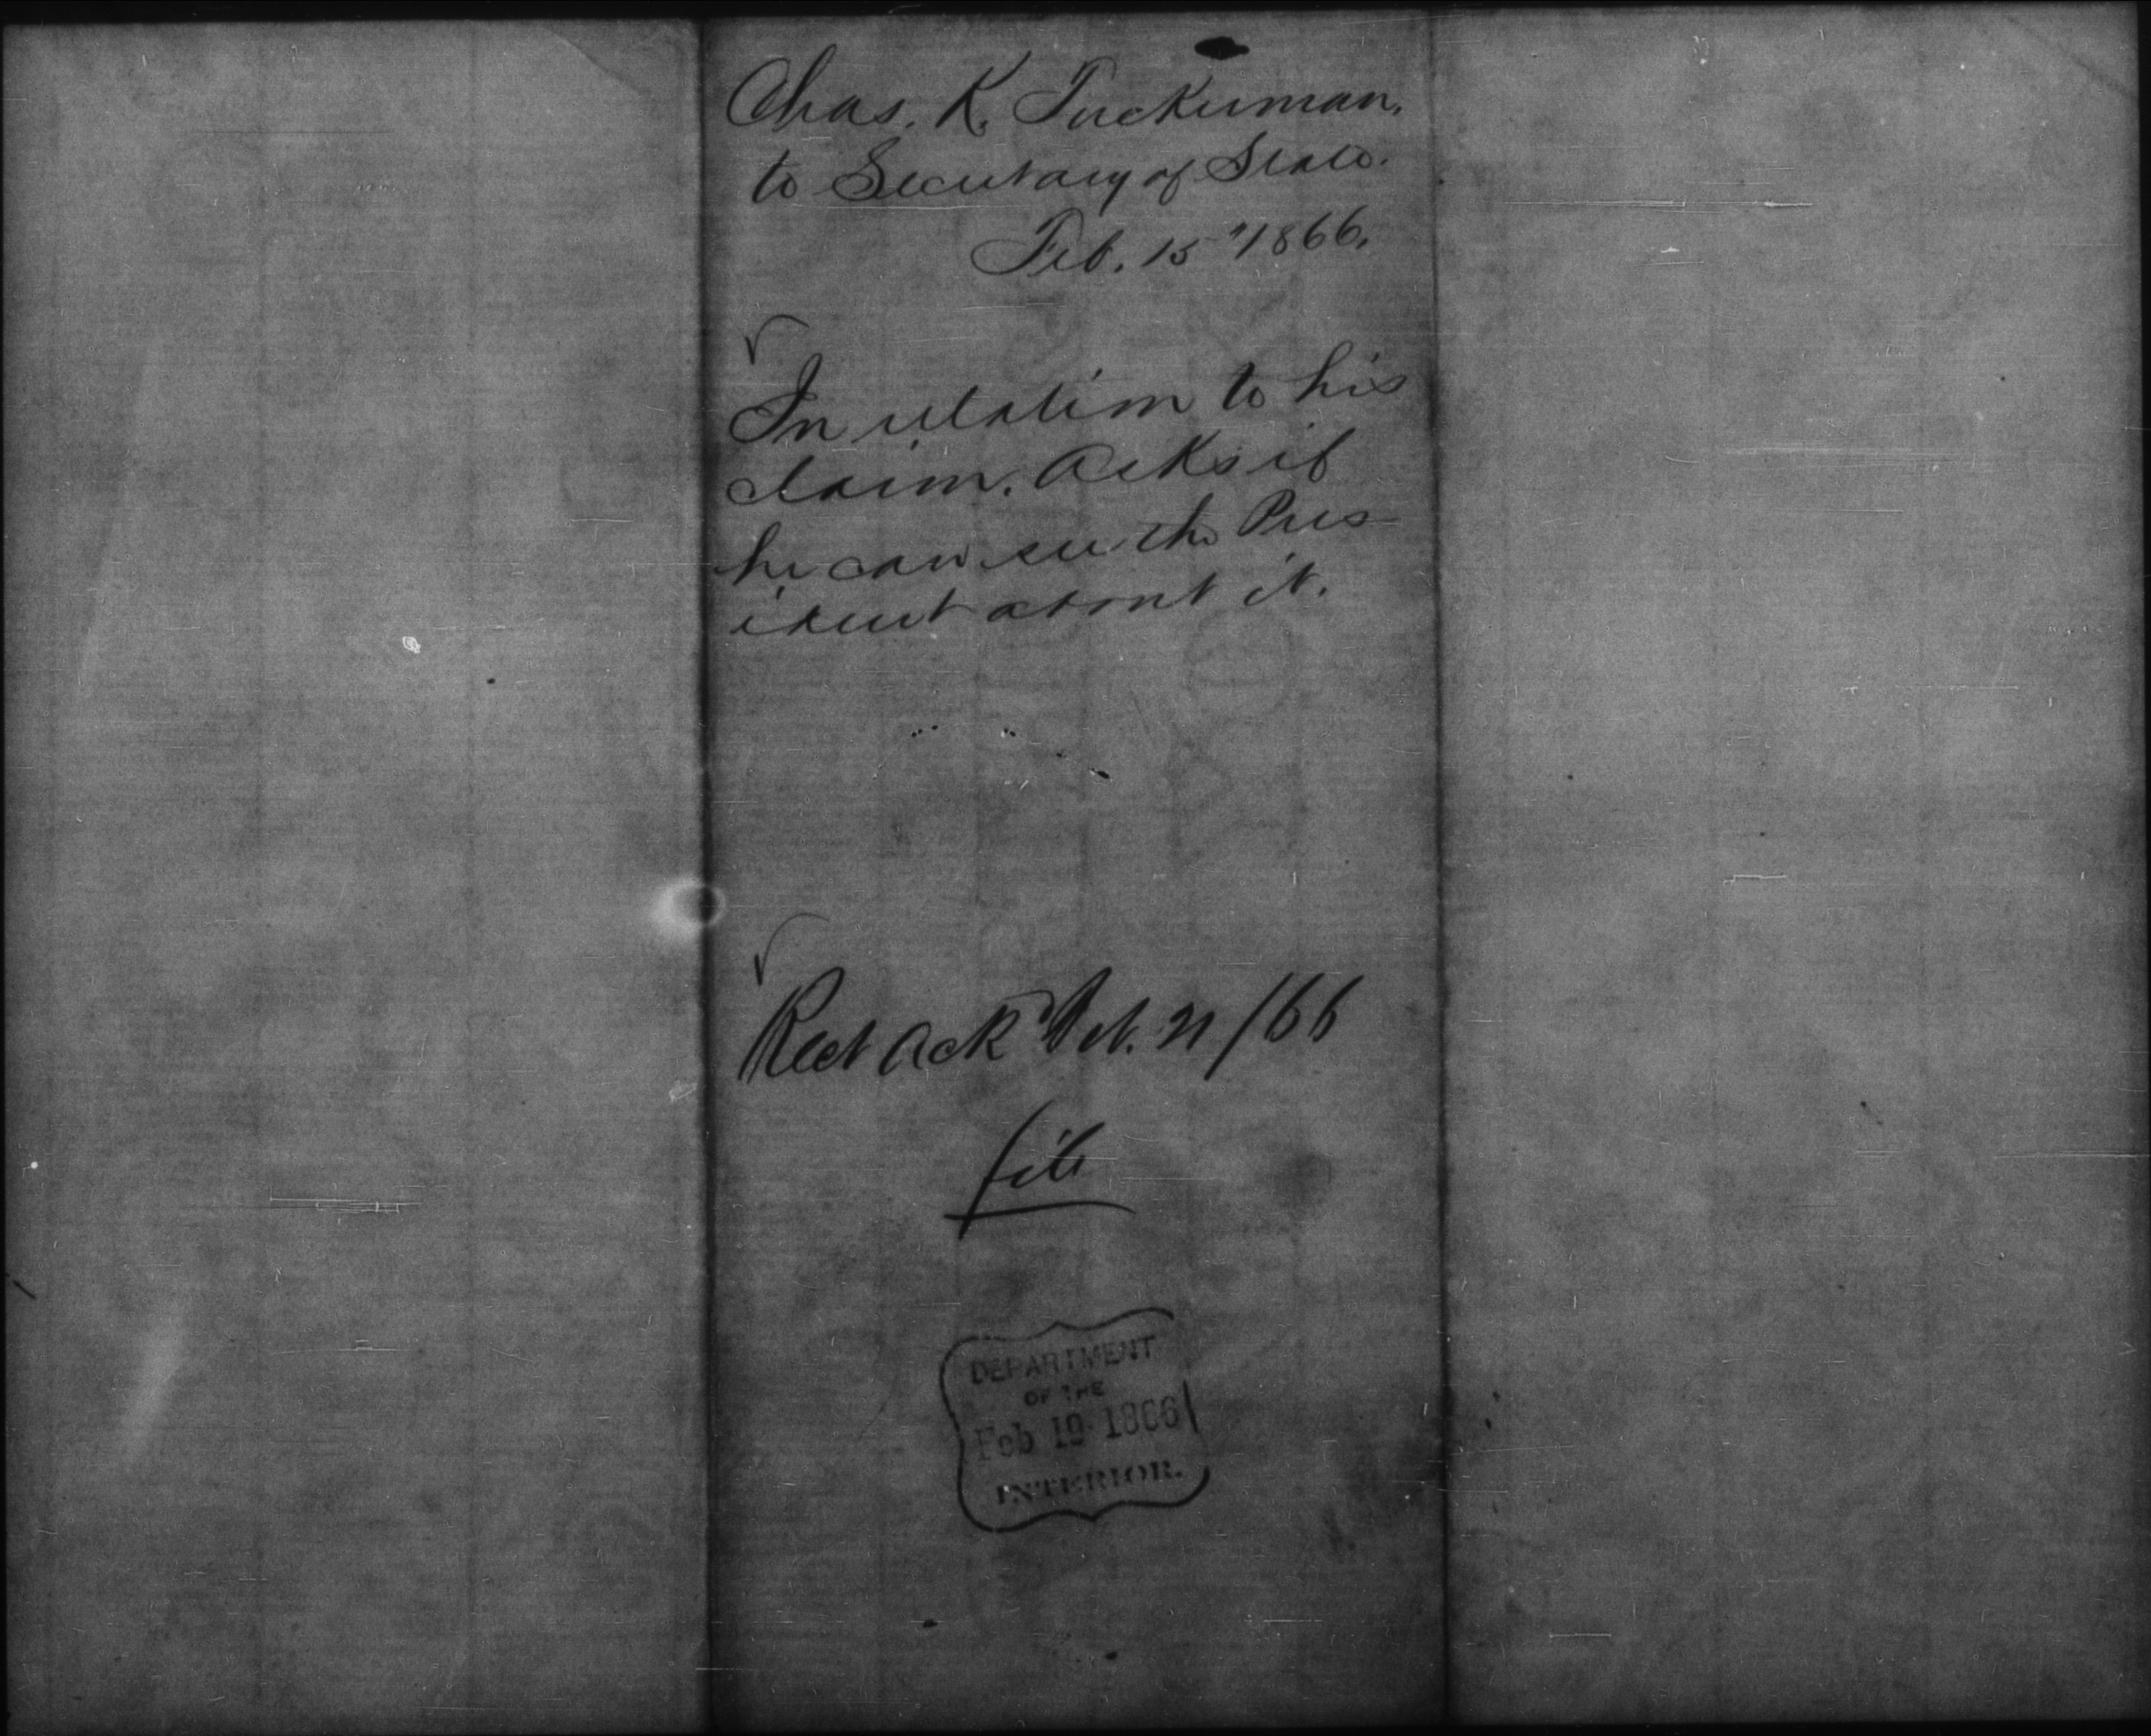 Chas. K. Tuckerman.
to Secretary of State.
Feb. 15" 1866.
In relation to his
claim. Asks if
he can see the Pres
ident about it.
Rect Ackd Feb. 21/66
file
DEPARTMENT
OF THE
Feb 19 1866
INTERIOR.